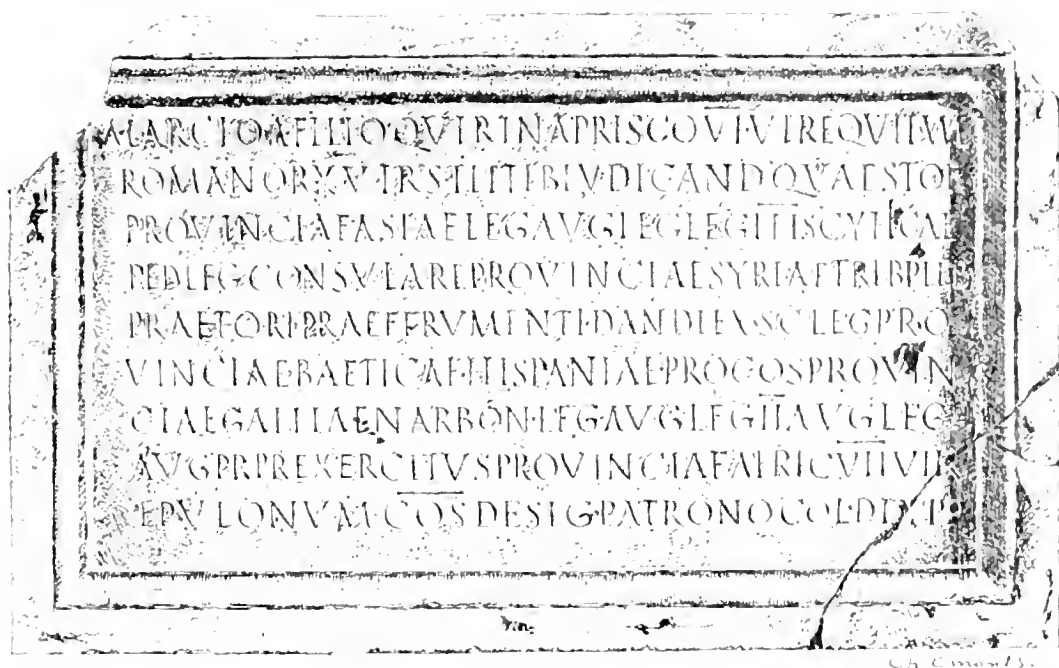 A·LARCIO A FILIO QVIRINA PRISCO VI VIR EQVITVM
ROMANOR X VIR STLITIB IVDICAND QVAESTOR
PROVINCIAE ASIAE LEG AVG LEG LEG IIII SCYTHICAE
PED LEG CONSVLARE PROVINCIAE SYRIAE TRIB PLEB
PRAETORI PRAEF FRVMENTI DANDI EX S C LEG PRO
VINCIAE BAETICAE HISPANIAE PROCOS PROVIN
CIAE GALLIAE NARBON·LEG AVG LEG II AVG LEG
AVG PR PR EXERCITVS PROVINCIAE AFRIC VII VIR
EPVLONVM COS DESIG·PATRONO COL·D D P P